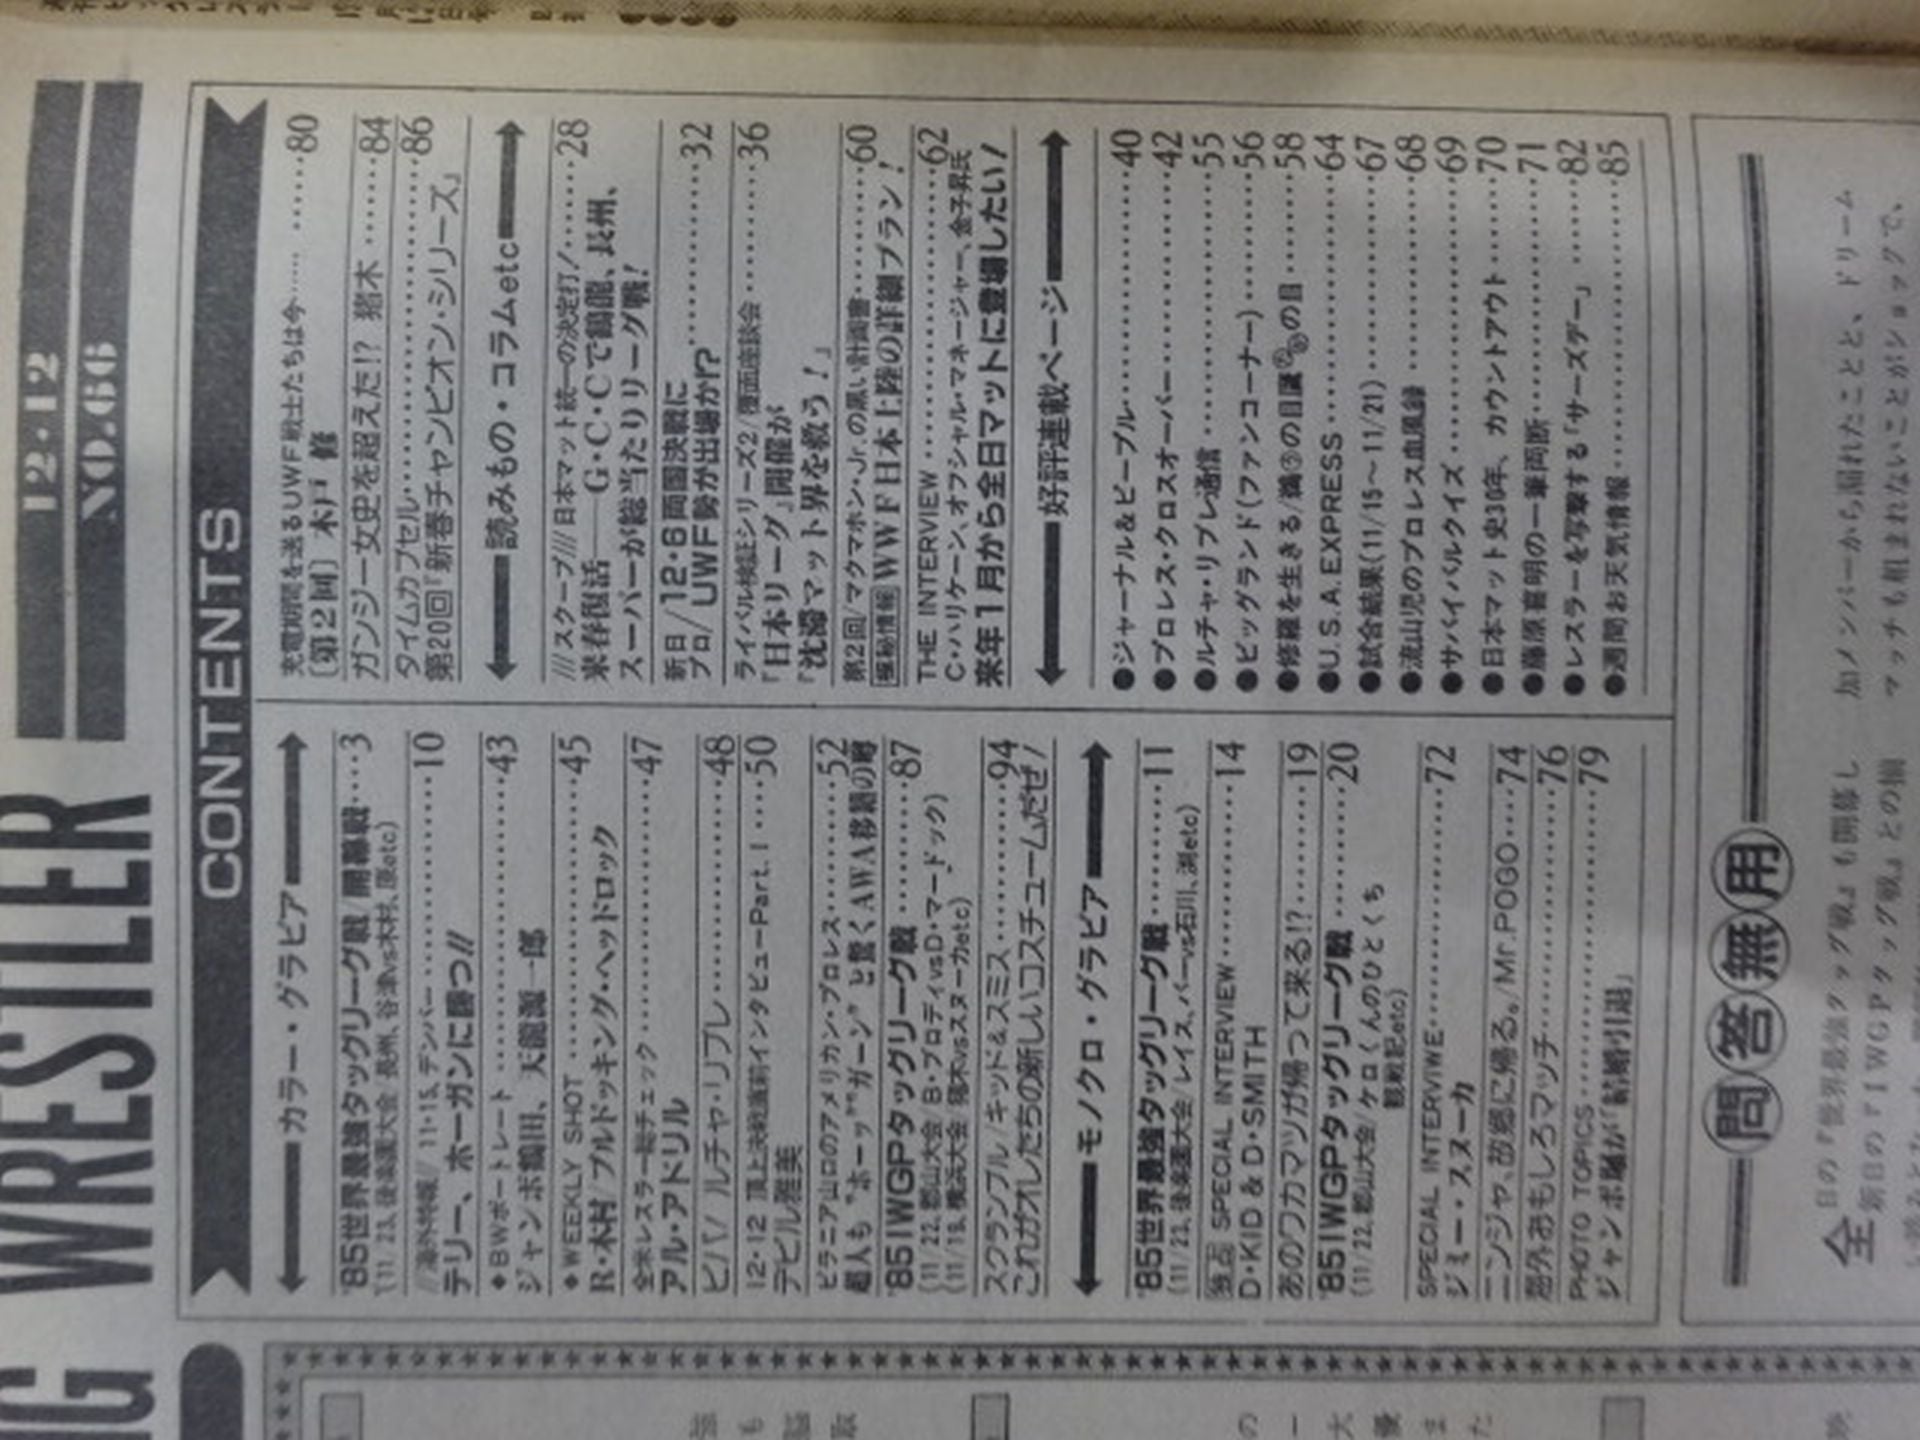 WRESTLER
12・12
NO.66
CONTENTS
カラー・グラビア
'85世界最強タッグリーグ戦/開幕戦……3
(11/23、後楽園大会/長州、谷津vs木村、原etc)
//海外特報// 11・15、デンバー……10
テリー、ホーガンに勝つ//
◆BWポートレート……43
ジャンボ鶴田、天龍源一郎
◆WEEKLY SHOT……45
R・木村 ブルドッキング・ヘッドロック
全米レスラー総チェック……47
アル・アドリル
ビバ/ルチャ・リブレ……48
12・12 頂上決戦直前インタビューPart.1……50
デビル雅美
ピラニア山口のアメリカン・プロレス……52
超人も“ホーッ”“ガーン”と驚くAWA移籍の噂
'85IWGPタッグリーグ戦……87
(11/22、郡山大会/B・ブロディvsD・マードック)
(11/19、横浜大会/猪木vsスヌーカetc)
スクランブル/キッド&スミス……94
これがオレたちの新しいコスチュームだぜ/
モノクロ・グラビア
'85世界最強タッグリーグ戦……11
(11/23、後楽園大会/レイス、バーvs石川、渕etc)
独占 SPECIAL INTERVIEW……14
D・KID & D・SMITH
あのワカマツが帰って来る!?……19
'85IWGPタッグリーグ戦……20
(11/22、郡山大会/ケロくんのひとくち
観戦記etc)
SPECIAL INTERVIWE……72
ジミー・スヌーカ
ニンジャ、故郷に帰る。/Mr.POGO……74
意外おもしろマッチ……76
PHOTO TOPICS……79
ジャンボ堀が「結婚引退」
充電期間を送るUWF戦士たちは今…… ……80
〔第2回〕木戸 修
ガンジー女史を超えた!? 猪木……84
タイムカプセル……86
第20回『新春チャンピオン・シリーズ』
読みもの・コラムetc
///スクープ///日本マット統一の決定打/……28
来春復活──G・C・Cで鶴龍、長州、
スーパーが総当たりリーグ戦!
新日/12・6両国決戦に
プロ/UWF勢が出場か!?……32
ライバル検証シリーズ2/覆面座談会……36
「『日本リーグ』開催が
『沈滞マット界を救う!』
第2回/マクマホン・Jr.の黒い計画書……60
極秘情報 WWF日本上陸の詳細プラン!
THE INTERVIEW……62
C・ハリケーン、オフシャル・マネージャー、金子昇氏
来年1月から全日マットに登場したい/
好評連載ページ
●ジャーナル&ピープル……40
●プロレス・クロスオーバー……42
●ルチャ・リブレ通信……55
●ビッグランド(ファンコーナー)……56
●修羅を生きる/鶴の目鷹の目……58
●U.S.A.EXPRESS……64
●試合結果(11/15〜11/21)……67
●流山児のプロレス血風録……68
●サバイバルクイズ……69
●日本マット史30年、カウントアウト……70
●藤原喜明の一筆両断……71
●レスラーを写撃する「サーズデー」……82
●週間お天気情報……85
問答無用
全日の『世界最強タッグ戦』も開幕し
新日の『IWGPタッグ戦』との
加メンバーから漏れたことと、ドリーム
マッチも組まれないことがショックで、